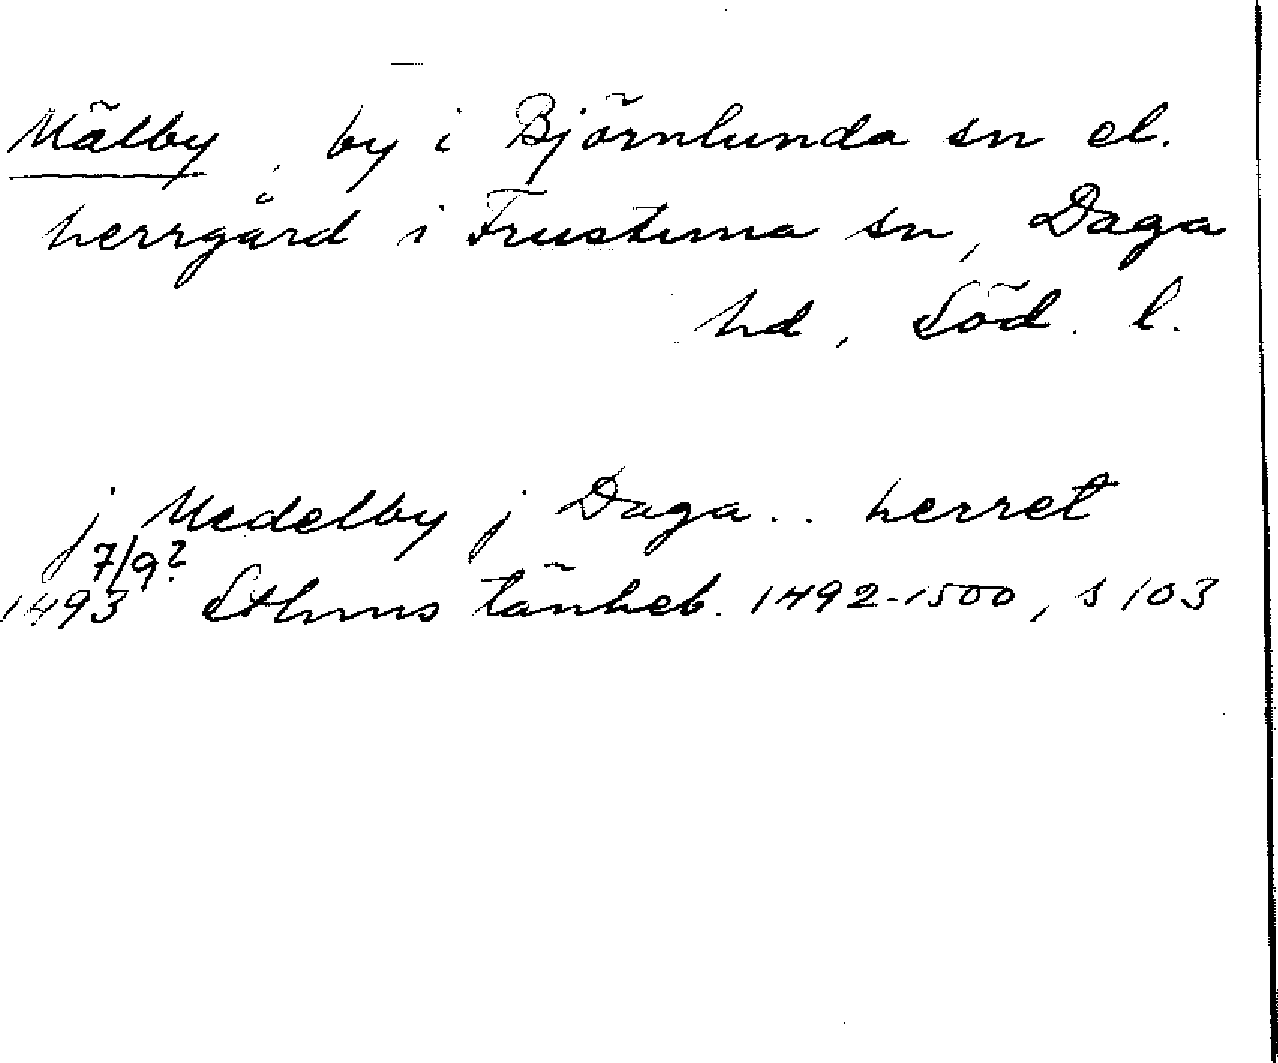 Mälby, by i Björnlunda sn el.
herrgård i Frustuna sn, Daga
hd, Söd. l.
j Medelby j Daga .. herret
7/9?
1493 Sthms tänkeb. 1492-1500, s 103